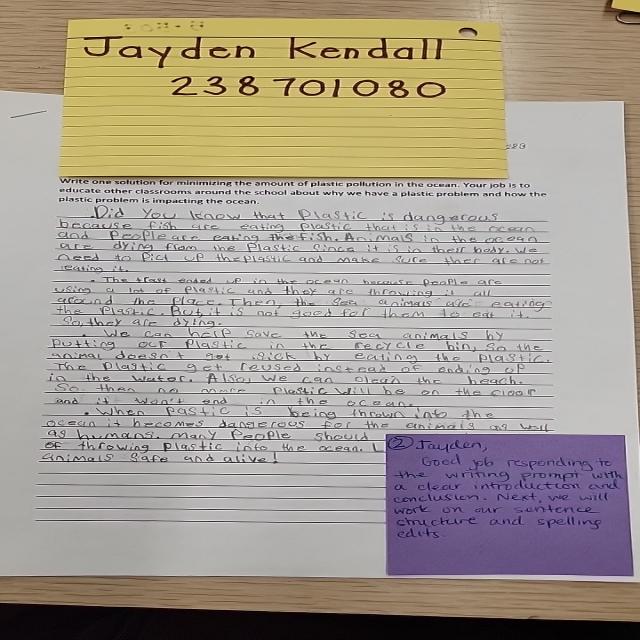 Jayden Kendall
238701080
Write one solution for minimizing the amount of plastic pollution in the ocean. Your job is to
educate other classrooms around the school about why we have a plastic problem and how the
plastic problem is impacting the ocean.
Did You know that Plastic is dangerous
because fish are eating Plastic that is in the ocean
and People are eating the fish. Animals in the ocean
are dying from the Plastic since it is in their body. We
need to Pick up the plastic and make sure ther are not
eating it.
• The trast ended up in the ocean because people are
using a lot of Plastic and they are throwing it all
around the place. Then, the sea animals are eating
the Plastic. But it is not good for them to eat it.
So, they are dying.
• We can help save the sea animals by
putting our Plastic in the recycle bin, so the
animal doesn't get sick by eating the Plastic.
The plastic get reused instead of ending up
in the water. Also, we can clean the beach.
So then no more Plastic will be on the floar
and it won't end in the ocean.
• When Pastic is being thrown into the
ocean it becomes dangerous for the animals as well
as humans. many People should
of throwing plastic into the ocean.
animals safe and alive!
② Jayden,
Good job responding to
the writing prompt with
a clear introduction and
conclusion. Next, we will
work on our sentence
structure and spelling
edits.